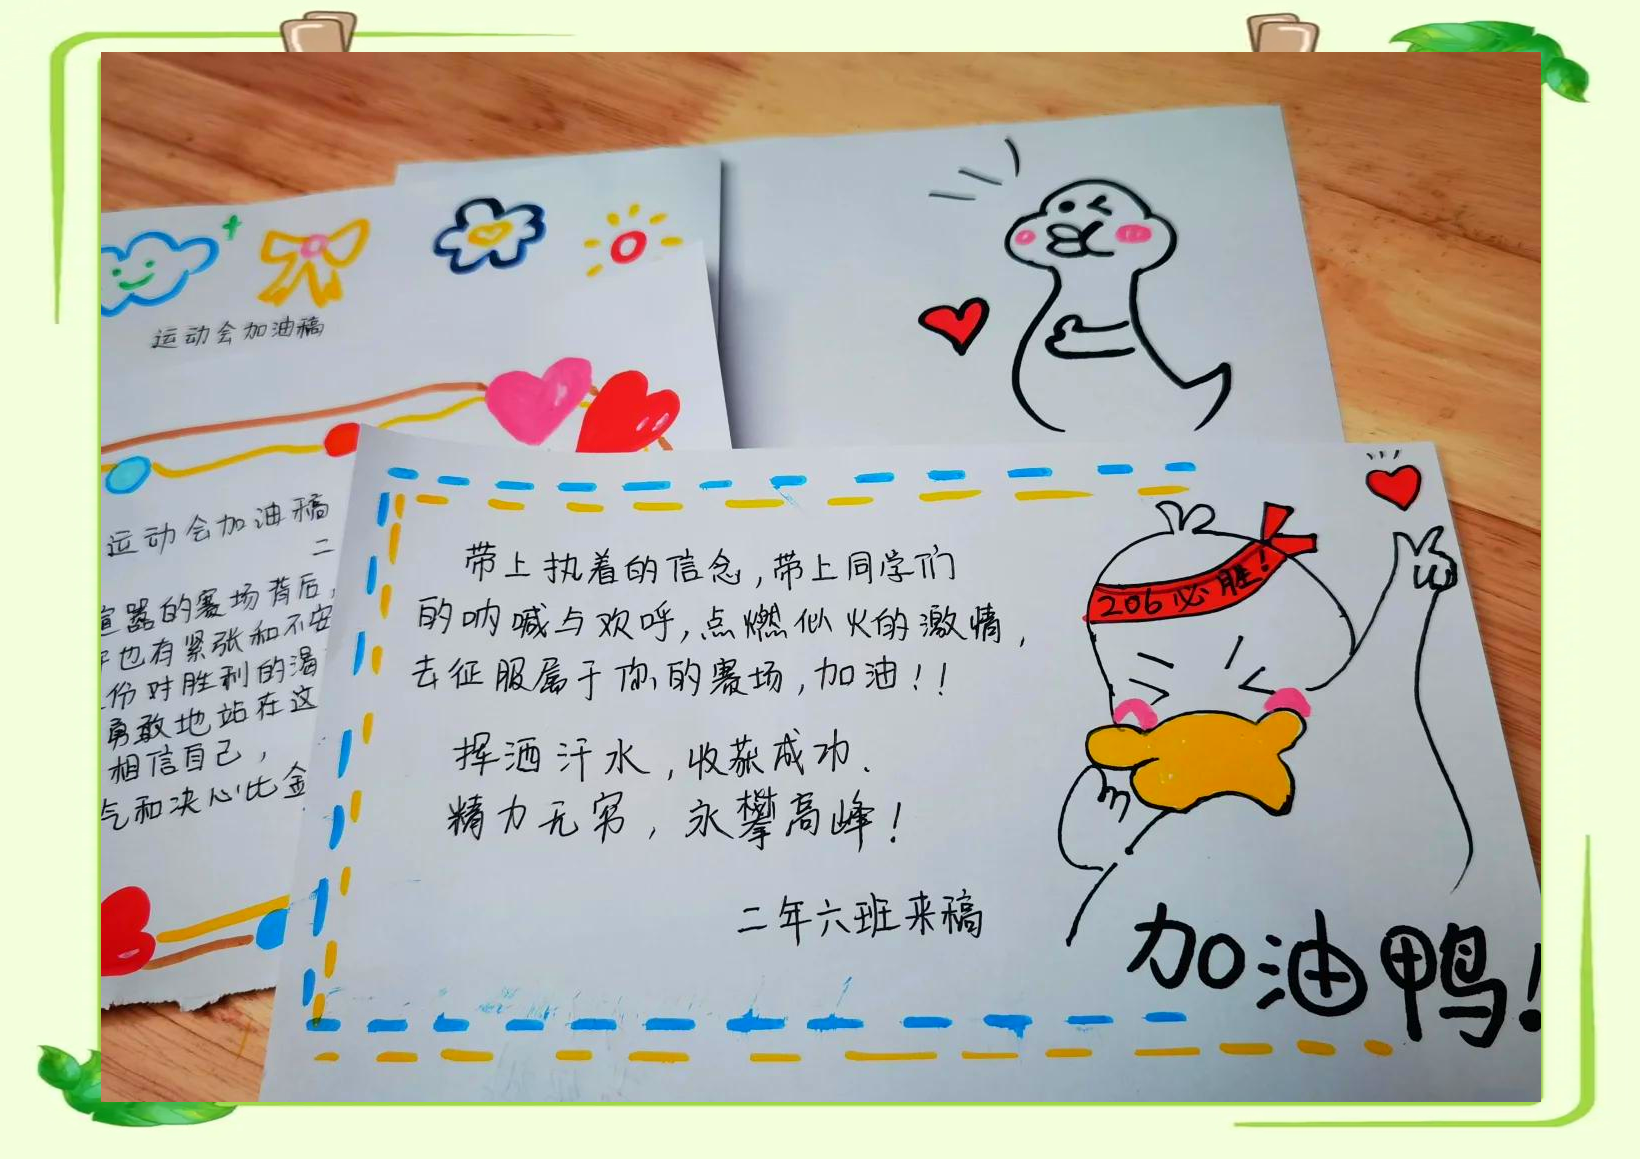 运动会加油稿
运动会加油稿
二
喧嚣的赛场背后,
也有紧张和不安
份对胜利的渴
勇敢地站在这
相信自己,
气和决心比金
带上执着的信念,带上同学们
的呐喊与欢呼,点燃似火的激情,
去征服属于你的赛场,加油!!
挥洒汗水,收获成功.
精力无穷,永攀高峰!
二年六班来稿
206必胜!
加油鸭!